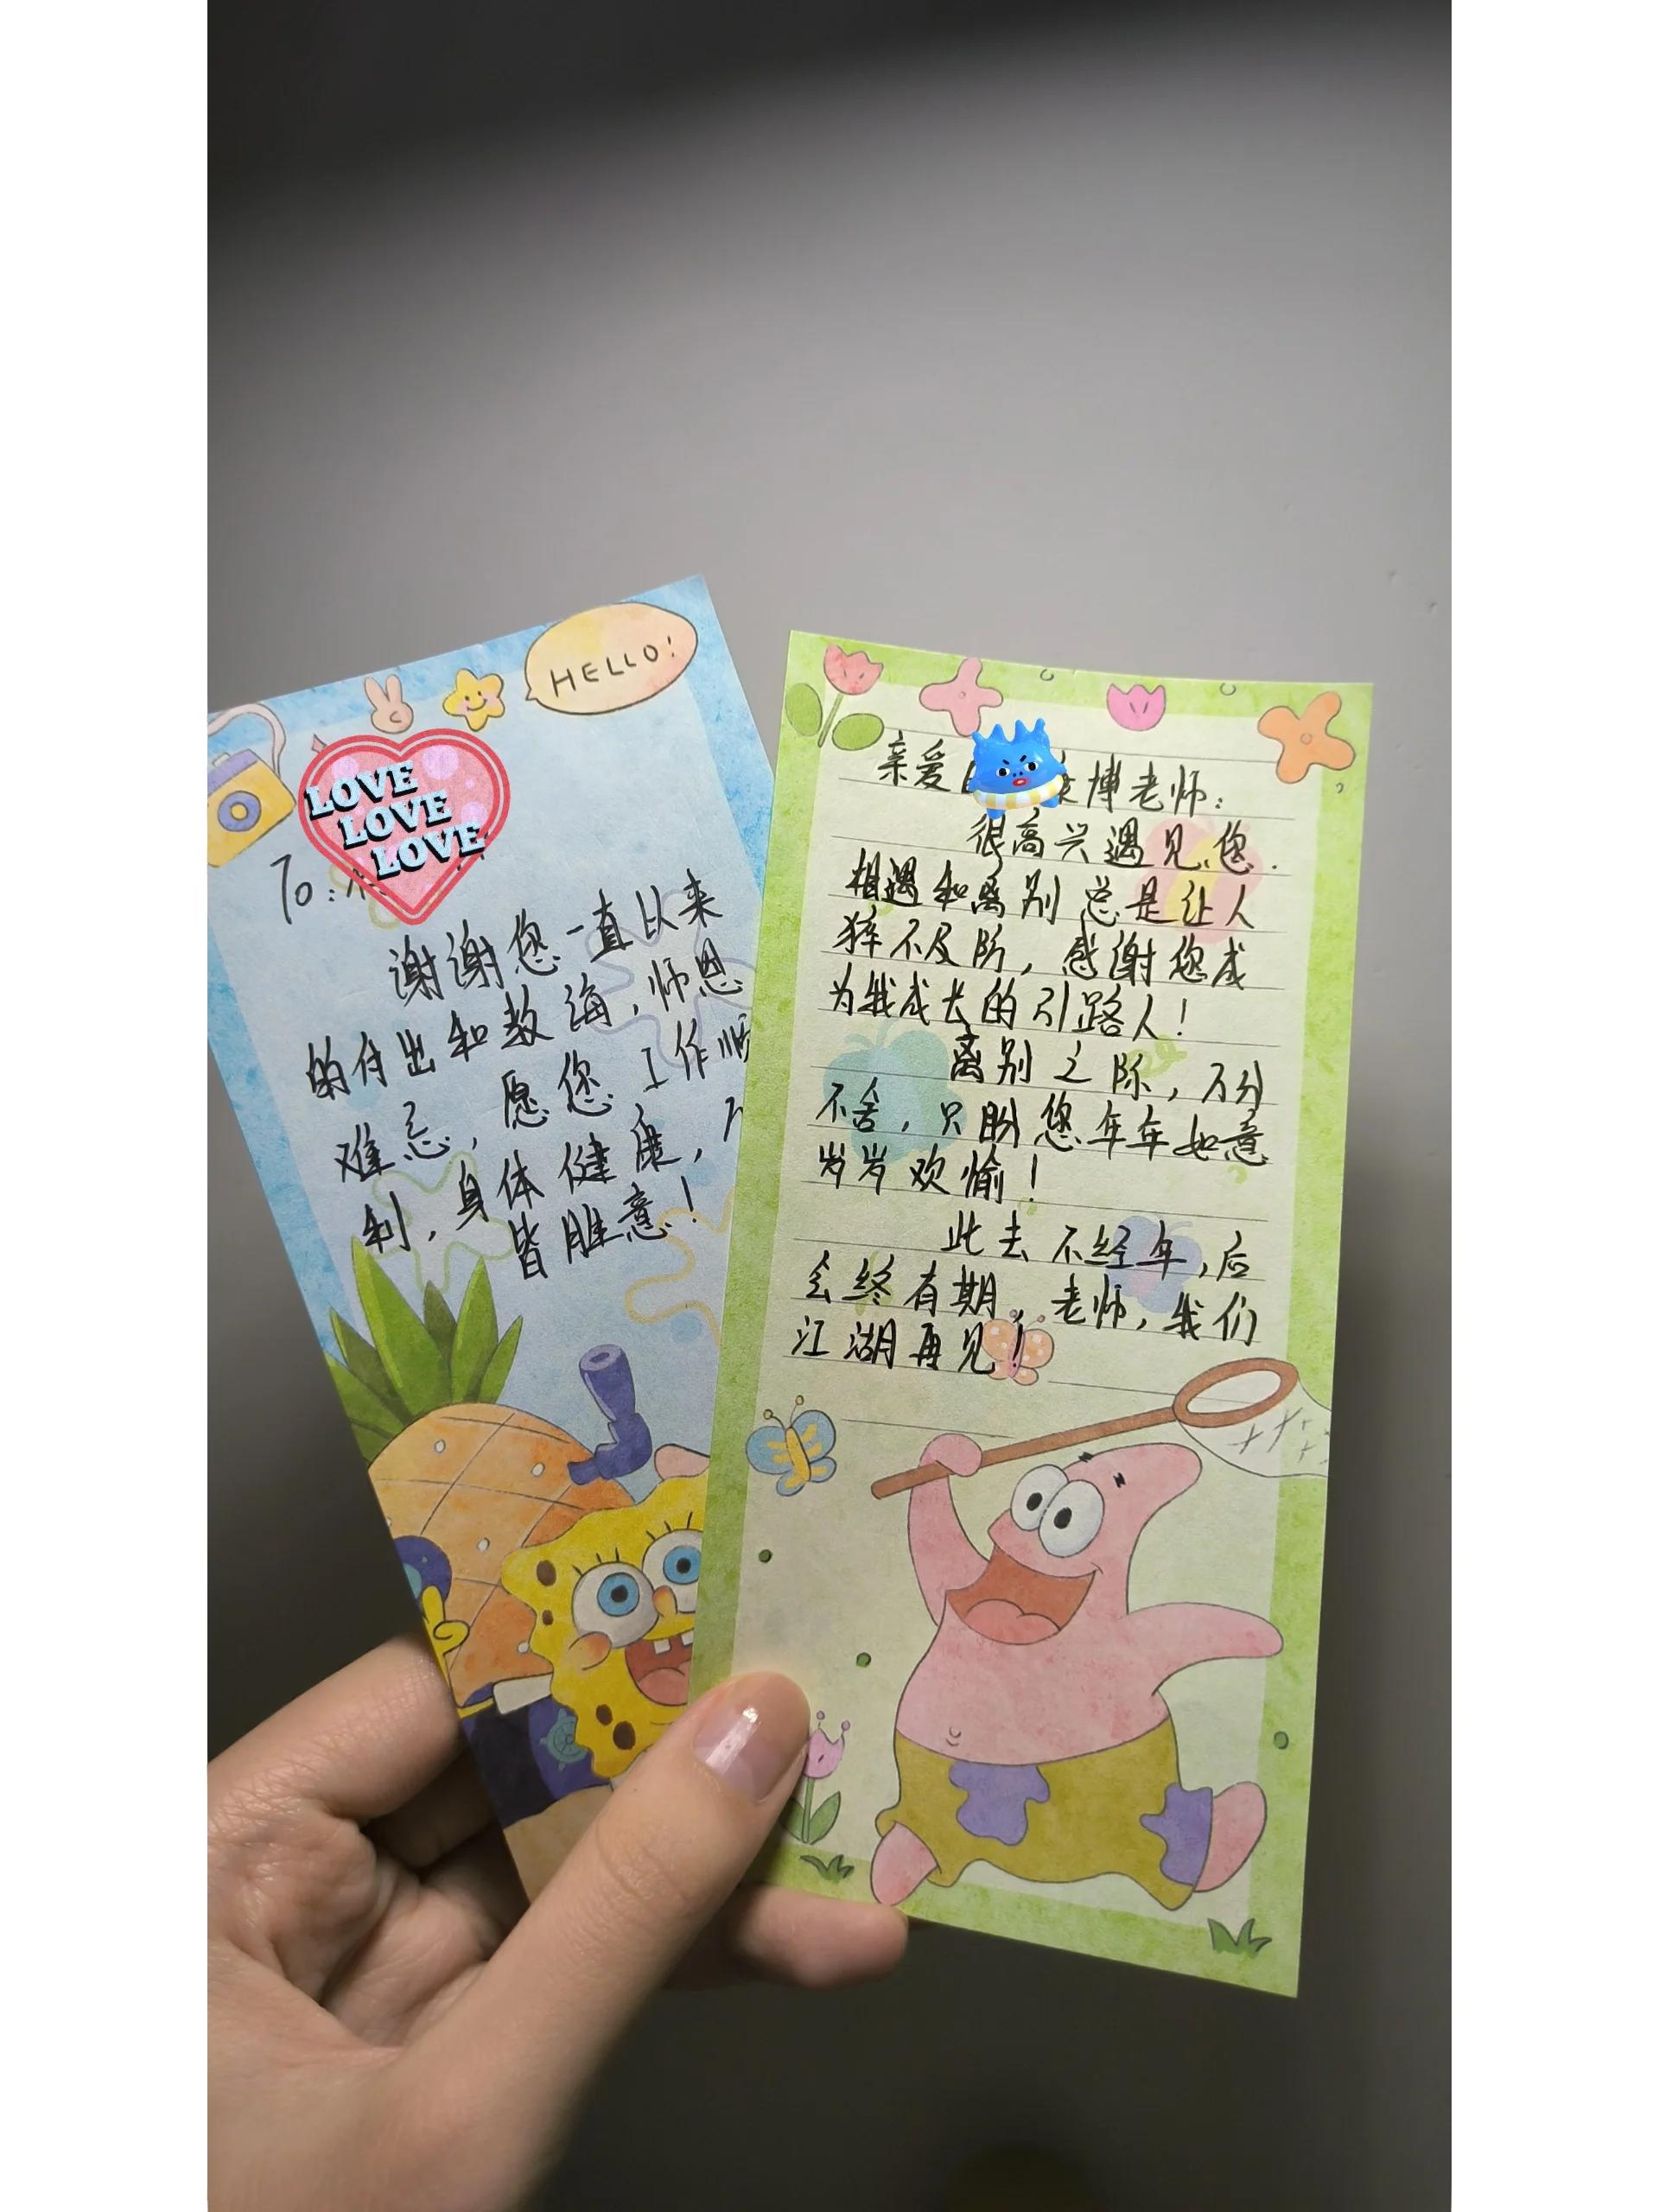 HELLO!
LOVE
LOVE
LOVE
To:
谢谢您一直以来
的付出和教诲,师恩
难忘,愿您工作顺
利,身体健康,
皆胜意!
亲爱 博老师:
很高兴遇见您.
相遇和离别总是让人
猝不及防,感谢您成
为我成长的引路人!
离别之际,万分
不舍,只盼您年年如意
岁岁欢愉!
此去不经年,后
会终有期,老师,我们
江湖再见!